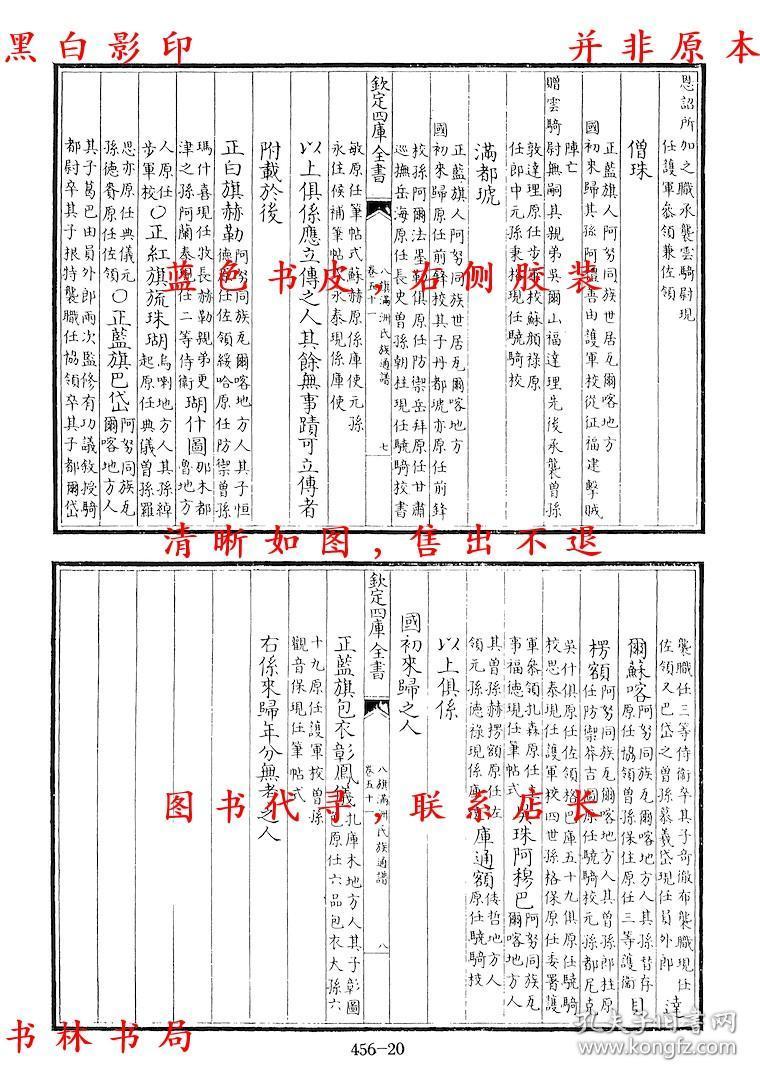 黑白影印
并非原本
恩詔所加之職承襲雲騎尉現
任護軍叅領兼佐領
僧珠
正藍旗人阿努同族世居瓦爾喀地方
國初來歸其孫阿
善由護軍校從征福建擊賊
陣亡
贈雲騎尉無嗣其親弟吳爾山福達理先後承襲曾孫
敦達理原任步
校蘇顏祿原
任郎中元孫
現任驍騎校
滿都琥
正藍旗人阿努同族世居瓦爾喀地方
國初來歸原任前鋒校其子丹都琥亦原任前鋒
校孫阿爾法
俱原任防禦岳拜原任甘肅
巡撫岳海原任長史曾孫朝拄現任驍騎校書
欽定四庫全書
八旗滿洲氏族通譜
卷五十一
七
敏原任筆帖式蘇赫原係庫使元孫
永住候補筆帖
永泰現係庫使
以上俱係應立傳之人其餘無事蹟可立傳者
附載於後
正白旗赫勒
阿努同族瓦爾喀地方人其子恒
德原任佐領綏哈原任防禦曾孫
瑪什喜現任牧長赫勒親弟更
瑚什圖
那木都
魯地方
津之孫阿蘭泰現任二等侍衛
人原任
步軍校〇正紅旗琉珠瑚
烏喇地方人其孫綽
起原任典儀曾孫羅
思亦原任典儀元
孫德
原任佐領〇正藍旗巴岱
阿努同族瓦
爾喀地方人
其子葛巴由員外郎兩次監修有功議敘授騎
都尉卒其子根特襲職任協領卒其子都爾岱
蓝色书皮,右侧胶装
清晰如图,售出不退
襲職任三等侍衛卒其子奇徹布襲職現任
佐領又巴岱之曾孫慕義岱現任員外郎
達
爾蘇喀
阿努同族瓦爾喀地方人其孫
存
原任協領曾孫保住原任三等護衛
目
楞額
阿努同族瓦爾喀地方人其曾孫郎拄原
任防禦
吉
原任驍騎校元孫都尼
吳什俱原任佐領格巴庫五十九俱原任驍騎
校思泰現任護軍校四世孫格保原任委署護
軍叅領扎森原任
事福德現任筆帖式
珠阿穆巴
阿努同族瓦
爾喀地方人
其曾孫赫楞額原任佐
領元孫德祿現係庫
庫通額
倭哲地方人
原任驍騎校
以上俱係
國初來歸之人
欽定四庫全書
八旗滿洲氏族通譜
卷五十一
八
正藍旗包衣彰鳳義
扎庫木地方人其子彰圖
原任六品包衣大孫六
十九原任護軍校曾孫
觀音保現任筆帖式
右係來歸年分無考之人
图书代寻,联系店长
书林书局
456-20
孔夫子旧书网
www.kongfz.com